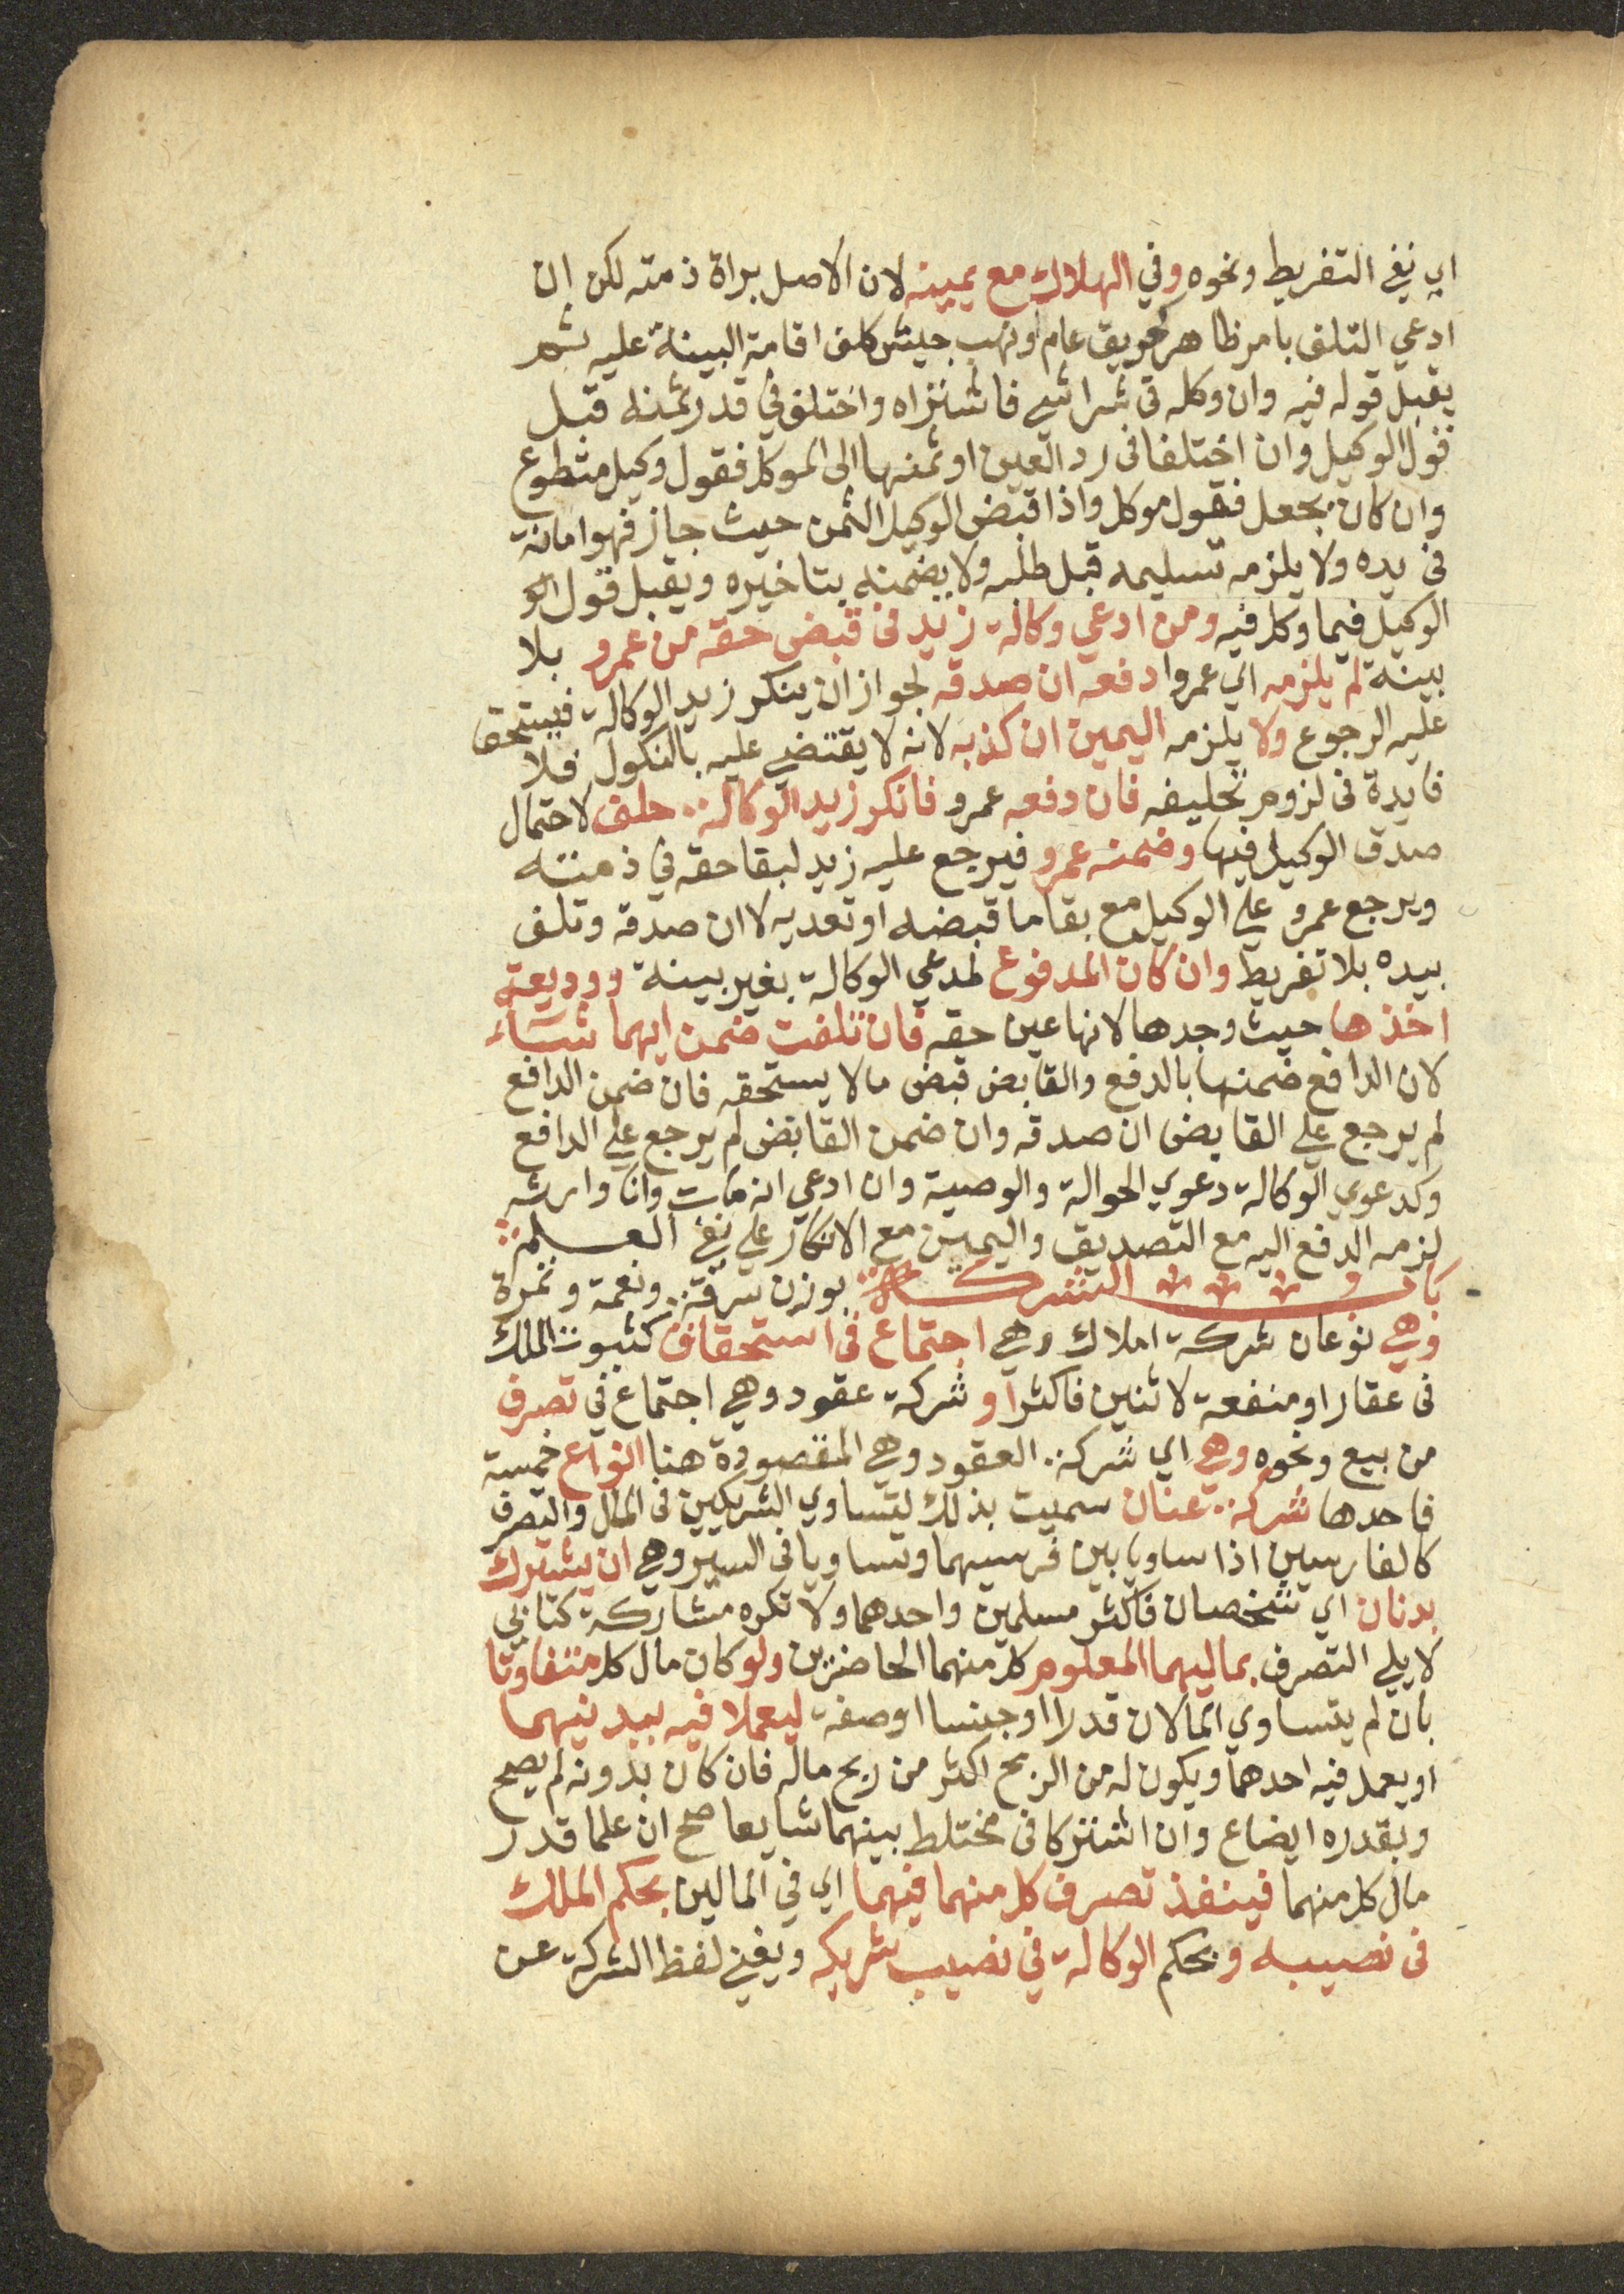 اي نفي التفريط ونحوه وفي الهلاك مع يمينه لان الاصل براة ذمته لكن ان
ادعي التلف بامر ظاهر كحريق عام او نهب جيش كلف اقامة البينة عليه ثم
يقبل قوله فيه وان وكله في شرا شي فاشتراه واختلف في قدر ثمنه قبل
قول الوكيل وان اختلفا في رد العين او ثمنها الى الموكل فقول وكيل متطوع
وان كان بجعل فقول موكل واذا قبض الوكيل الثمن حيث جاز فهو امانة
في يده ولا يلزمه تسليمه قبل طلبه ولا يضمنه بتاخيره ويقبل قول الو
الوكيل فيما وكل فيه ومن ادعي وكالة زيد في قبض حقه من عمرو بلا
بينة لم يلزمه اي عمروا دفعه ان صدقه لجواز ان ينكر زيد الوكالة فيستحق
عليه الرجوع ولا يلزمه اليمين ان كذبه لانه لا يقتضي عليه بالنكول فلا
فايدة في لزوم تحليفه فان دفعه عمرو فانكر زيد الوكالة حلف لاحتمال
صدق الوكيل فيها وضمنه عمرو فيرجع عليه زيد لبقا حقه في ذمته
ويرجع عمرو علي الوكيل مع بقا ما قبضه او تعديه لا ان صدقه وتلف
بيده بلا تفريط وان كان المدفوع لمدعي الوكالة بغير بينة ووديعة
اخذها حيث وجدها لانها عين حقه فان تلفت ضمن ايهما شاء
لان الدافع ضمنها بالدفع والقابض قبض مالا يستحقه فان ضمن الدافع
لم يرجع علي القابض ان صدقه وان ضمن القابض لم يرجع علي الدافع
وكدعوي الوكالة دعوي الحوالة والوصية وان ادعي انه مات وانا وارثه
لزمه الدفع اليه مع التصديق واليمين مع الانكار علي نفي العلم
باب الشركة بوزن سرقة ونعمة وثمرة
وهي نوعان شركة املاك وهي اجتماع في استحقاق كثبوت الملك
في عقار او منفعة لاثنين فاكثر او شركة عقود وهي اجتماع في تصرف
من بيع ونحوه وهي اي شركة العقود وهي المقصودة هنا انواع خمسة
فاحدها شركة عنان سميت بذلك لتساوي الشريكين في المال والتصرف
كالفارسين اذا ساويا بين فرسيهما وتساويا في السير وهي ان يشترك
بدنان اي شخصان فاكثر مسلمين واحدهما ولا تكره مشاركة كتابي
لا يلي التصرف بماليهما المعلوم كل منهما الحاضرين ولو كان مال كل متفاوتا
بان لم يتساوي المالان قدرا او جنسا او صفة ليعملا فيه ببدنيهما
او يعمل فيه احدهما ويكون له من الربح اكثر من ربح ماله فان كان بدونه لم يصح
وبقدره ايضاع وان اشتركا في مختلط بينهما شايعا صح ان علما قدر
مال كل منهما فينفذ تصرف كل منهما فيهما اي في المالين بحكم الملك
في نصيبه وبحكم الوكالة في نصيب شريكه ويغني لفظ الشركة عن